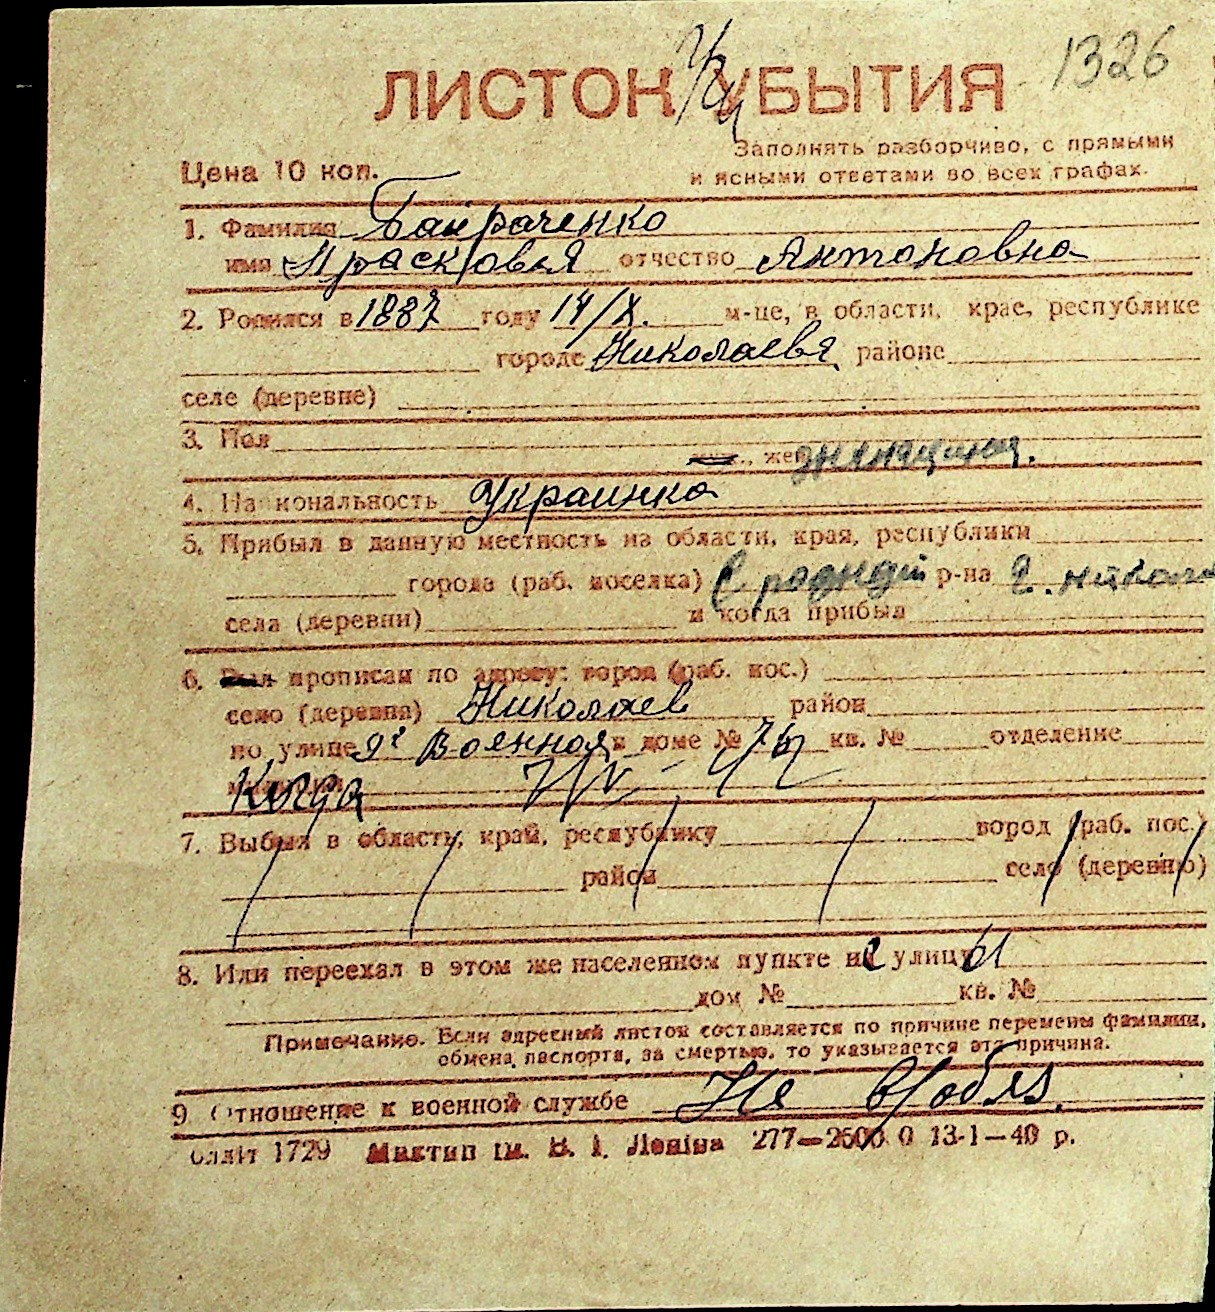 1326
ЛИСТОК УБЫТИЯ
Цена 10 коп.
Заполнять разборчиво, с прямыми
и ясными ответами во всех графах.
1. Фамилия Байраченко
имя Прасковья отчество Антоновна
2. Родился в 1887 году 14/X. м-це, в области, крае, республике
городе Николаевя районе
селе (деревне)
3. Пол
жен. женщина.
4. Национальность Украинка
5. Прибыл в данную местность из области, края, республики
города (раб. поселка) р-на г.
села (деревни) и когда прибыл
6. Был прописан по адресу: город (раб. пос.)
село (деревня) Николаев район
по улице Военная в доме № кв. № отделение
Когда
7. Выбыл в область, край, республику город (раб. пос.)
район село (деревню)
8. Или переехал в этом же населенном пункте на улицу
дом № кв. №
Примечание. Если адресный листок составляется по причине перемены фамилии,
обмена паспорта, за смертью, то указывается эта причина.
9 Отношение к военной службе Не в/обяз.
Оллiт 1729 Миктип iм. В. I. Ленiна 277—2500 0 13-1—40 р.